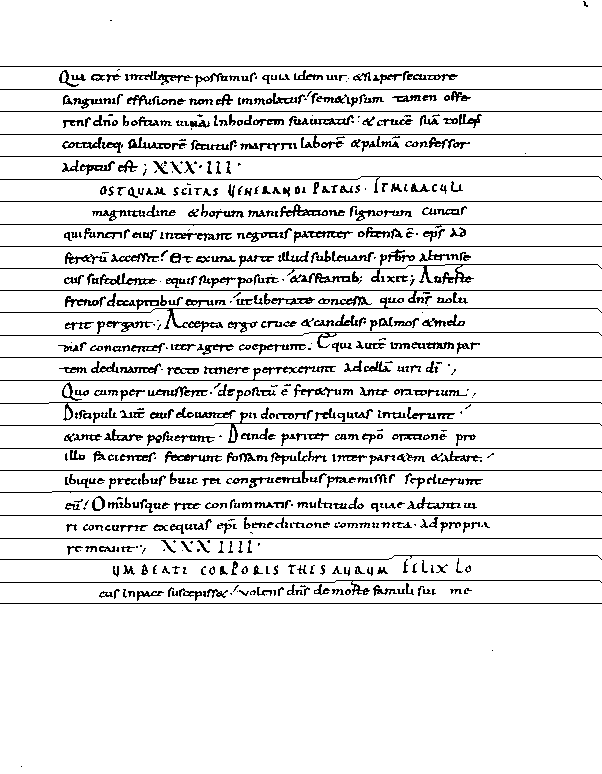 Qua ex re intellegere possumus. quia idem uir. & si a persecutore
sanguinis effusione non est immolatus. semetipsum tamen offe
rens dño hostiam uiuā; In hodorem suauitatis. & crucē suā tollens
cottidieq; saluatorē secutus. martyrii laborē & palmā confessor
adeptus est; XXXIII.
OSTQUAM SCĪTAS UENERANDI PATRIS. ET MIRACULI
magnitudine & horum manifestatione signorum cunctis
qui funeris eius intererant negotiis patenter ostensa ē. ep̄s ad
feretrū accessit. Et ex una parte illud subleuans. prb̄ro alterinse
cus sustollente. equis superposuit. & astantib; dixit; Auferte
frenos de capitibus eorum. ut libertate concessa quo dn̄s uolu
erit pergant; Accepta ergo cruce & candelis. psalmos & melo
dias concinentes. iter agere coeperunt. Equi autē in neutram par
tem declinantes. recto itinere perrexerunt ad cellā uiri dī;
Quo cum peruenissent. depositū ē feretrum ante oratorium;
Discipuli autē eius eleuantes pii doctoris reliquias intulerunt
& ante altare posuerunt. Deinde pariter cum epō orationē pro
illo facientes. fecerunt fossam sepulchri inter pariet̄em & altare.
ibique precibus huic rei congruentibus praemissis sepelierunt
eū. Omibusque rite consummatis. multitudo quae ad tanti ui
ri concurrit exequias epī benedictione communita. ad propria
remeauit; XXXIIII.
UM BEATI CORPORIS THESAURUM FELIX LO
cus in pace suscepisset. uolens dn̄s de morte famuli sui me